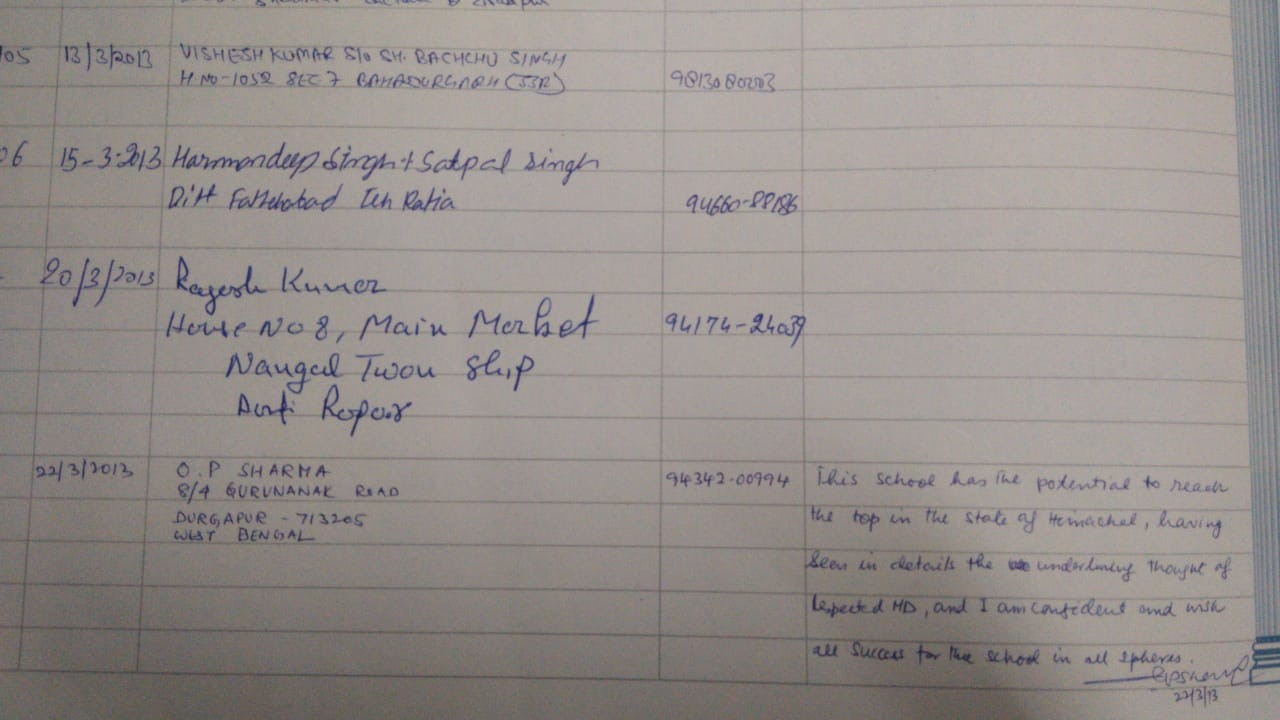 05 13/3/2013 VISHESH KUMAR S/o SH. BACHCHU SINGH
H.NO-1052 SEC 7 BAHADURGARH (JJR) 9813080203
06 15-3-2013 Harmandeep Singh + Satpal Singh
Ditt Fatehabad Teh Ratia 94660-88186
20/3/2013 Rajesh Kumar
House No 8, Main Market 94174-24039
Nangal Twon Ship
Ropar
22/3/2013 O.P SHARMA 94342-00994 This school has the potential to reach
8/4 GURUNANAK ROAD
the top in the state of Himachal, having
DURGAPUR - 713205
WEST BENGAL
seen in details the underlining thought of
respected MD, and I am confident and wish
all success for the school in all spheres.
22/3/13